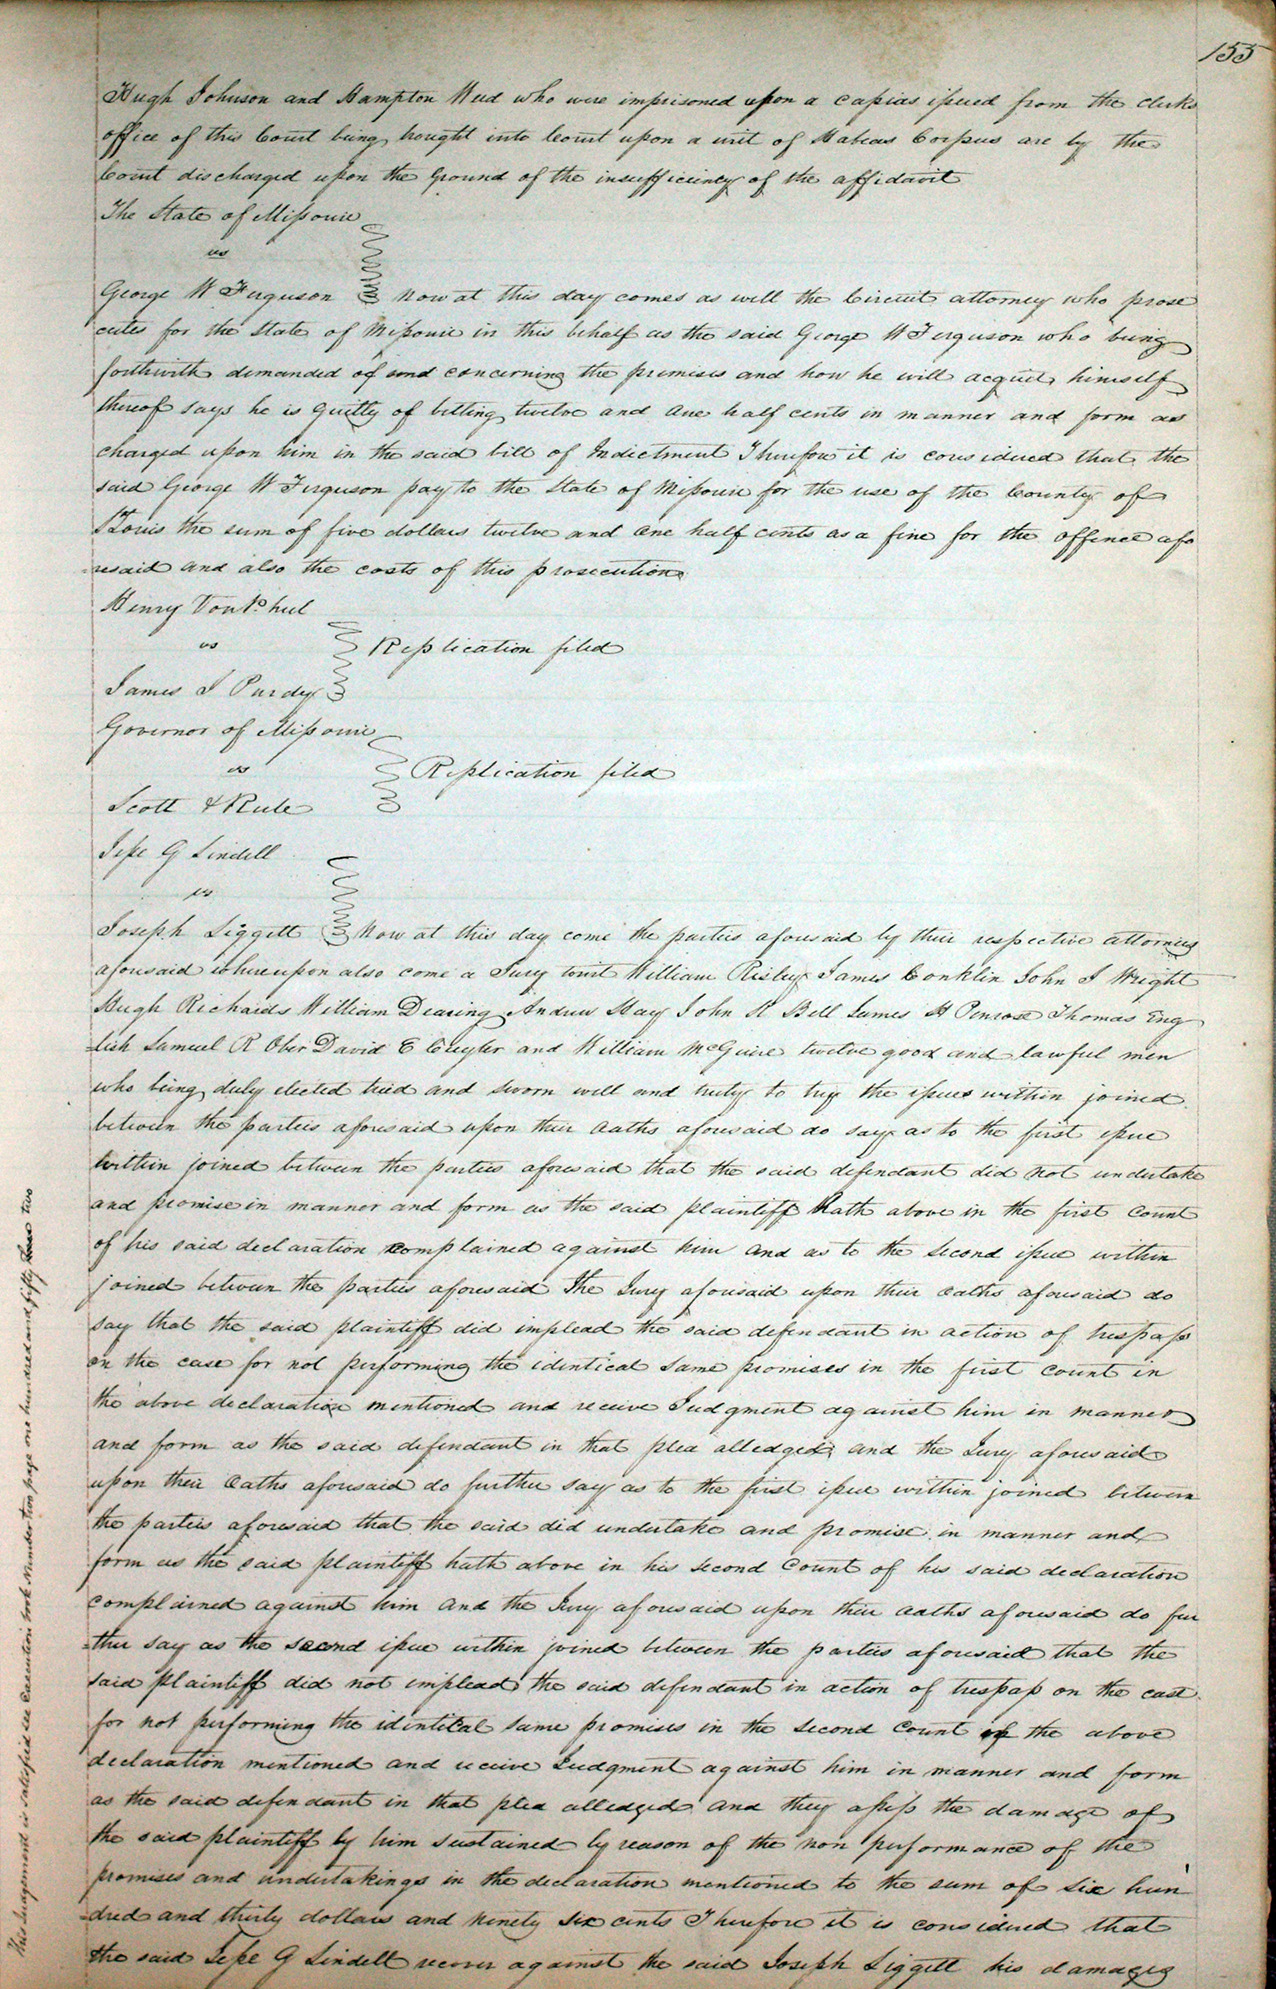 155
Hugh Johnson and Hampton Weed who were imprisoned upon a capias issued from the clerks
office of this Court being brought into Court upon a writ of Habeas Corpus are by the
Court discharged upon the Ground of the insufficiency of the affidavit
The State of Missouri
vs
George W Ferguson Now at this day comes as well the Circuit attorney who prose
cutes for the State of Missouri in this behalf as the said George W Ferguson who being
forthwith demanded of and concerning the premises and how he will acquit himself
thereof says he is Guilty of betting twelve and one half cents in manner and form as
charged upon him in the said bill of Indictment Therefore it is considered that the
said George W Ferguson pay to the State of Missouri for the use of the County of
St Louis the sum of five dollars twelve and one half cents as a fine for the offence afo
resaid and also the costs of this prosecution
Henry Von Phul
vs
Replication filed
James J Purdy
Governor of Missouri
vs
Replication filed
Scott & Rule
Jesse G Lindell
vs
Joseph Liggett Now at this day come the parties aforesaid by their respective attorneys
aforesaid whereupon also come a Jury towit William Risley James Conklin John J Wright
Hugh Richards William Dearing Andrew Hay John R Bell James H Penrose Thomas Eng
lish Samuel R Ober David E Cuyler and William McGuire twelve good and lawful men
who being duly elected tried and sworn well and truly to try the issues within joined
between the parties aforesaid upon their oaths aforesaid do say as to the first issue
within joined between the parties aforesaid that the said defendant did not undertake
and promise in manner and form as the said plaintiff hath above in the first Count
of his said declaration complained against him and as to the Second issue within
joined between the parties aforesaid The Jury aforesaid upon their oaths aforesaid do
say that the said plaintiff did implead the said defendant in action of trespass
on the case for not performing the identical same promises in the first count in
the above declaration mentioned and receive Judgment against him in manner
and form as the said defendant in that plea alledged and the Jury aforesaid
upon their Oaths aforesaid do further say as to the first issue within joined between
the parties aforesaid that the said did undertake and promise in manner and
form as the said plaintiff hath above in his second Count of his said declaration
complained against him and the Jury aforesaid upon their oaths aforesaid do fur
ther say as the second issue within joined between the parties aforesaid that the
said plaintiff did not implead the said defendant in action of trespass on the case
for not performing the identical same promises in the Second Count of the above
declaration mentioned and receive Judgment against him in manner and form
as the said defendant in that plea alledged and they assess the damage of
the said plaintiff by him sustained by reason of the non performance of the
promises and undertakings in the declaration mentioned to the sum of six hun
dred and thirty dollars and ninety six cents Therefore it is considered that
the said Jesse G Lindell recover against the said Joseph Liggett his damages
This Judgement is satisfied see Execution book Number two page one hundred and fifty two